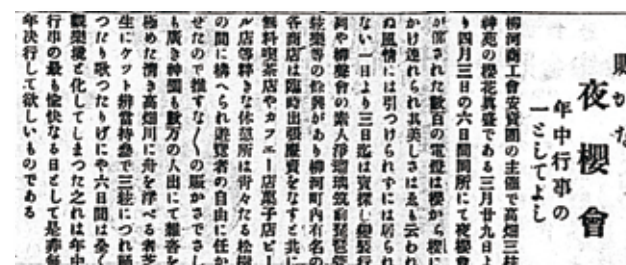 賑かな
夜櫻會
年中行事の
一としてよし
柳河商工會安賣團の主催で高畑三柱
神苑の櫻花眞盛である三月廿九日よ
り四月三日の六日間同所にて夜櫻會
が催された數百の電燈は櫻から櫻に
かけ連れられ其美しさはゑも云われ
ぬ風情には引つけられずには居られ
ない一日より三日迄は寳探し變裝行
列や柳聲會の素人淨瑠璃筑前琵琶箏
絃樂等の餘興があり柳河町内有名の
各商店は臨時出張廢賣をなすと共に
無料喫茶店やカフエー店菓子店ビー
ル店等粋きな休憩所は靑々たる松樹
の間に構へられ遊覽者の自由に任か
せたので推すな〳〵の賑かさでさし
も廣き神園も數万の人出にて雜沓を
極めた淸き高畑川に舟を浮べる者芝
生にケツト辨當持參で三絃につれ踊
つたり歌つたりげにや六日間は全く
觀樂境と化してしまつた之れは年中
行事の最も愉快なる日として是非毎
年決行して欲しいものである